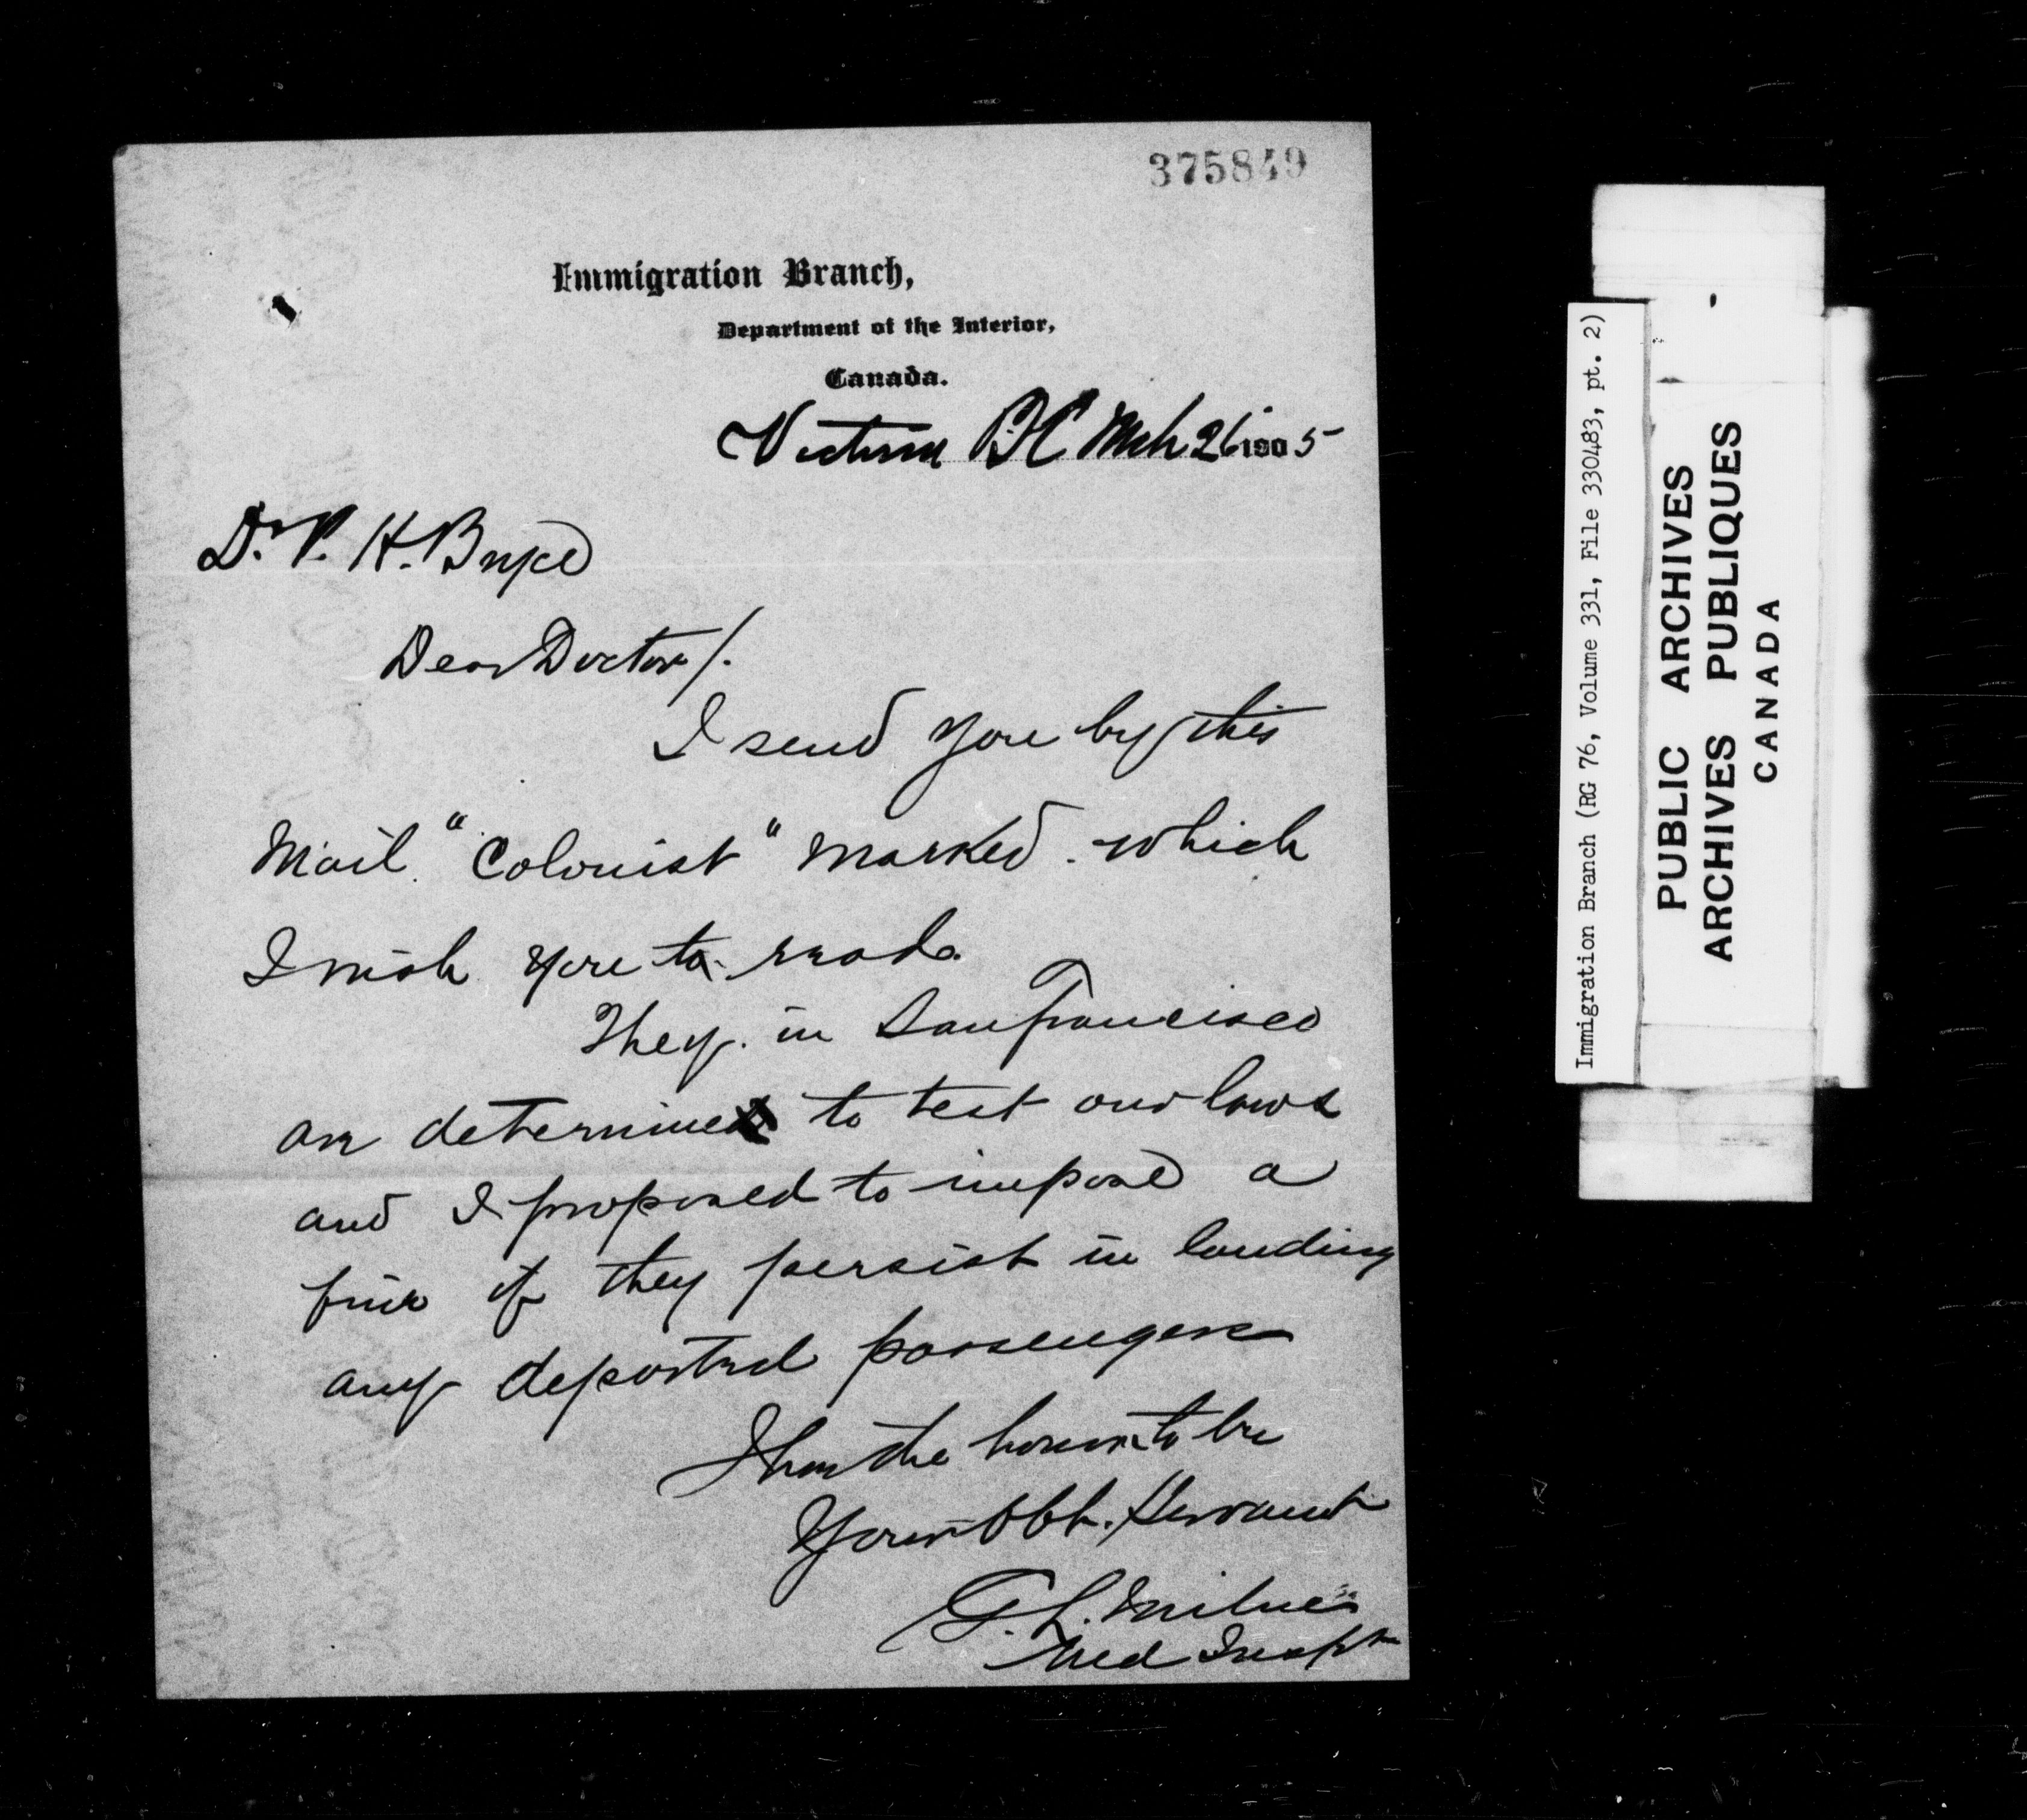 375849
Immigration Branch,
Department of the Interior,
Canada.
Victoria BC Mch 26 1905
Dr. P. H. Bryce
Dear Doctor/.
I send you by this
Mail "Colonist" marked. which
I wish you to read.
They. in San Francisco
are determined to test our laws
and I proposed to impose a
fine if they persist in landing
any deported passengers
I have the honor to be
Your Obt. Servant
G. L. Milne
Med Inspt
Immigration Branch (RG 76, Volume 331, File 330483, pt. 2)
PUBLIC ARCHIVES
ARCHIVES PUBLIQUES
CANADA